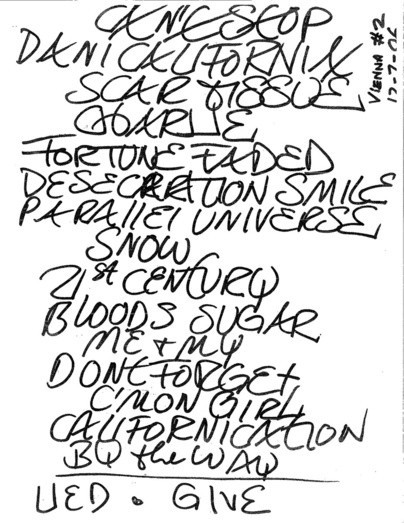 CAN'T STOP
DANI CALIFORNIA
SCAR TISSUE
CHARLIE
FORTUNE FADED
DESECRATION SMILE
PARALLEl UNIVERSE
SNOW
21st CENTURY
BLOODS SUGAR
ME + MY
DONT FORGET
C'MON GIRL
CALIFORNICATION
BY the WAY
UED . GIVE
VIENNA #2
12-7-06